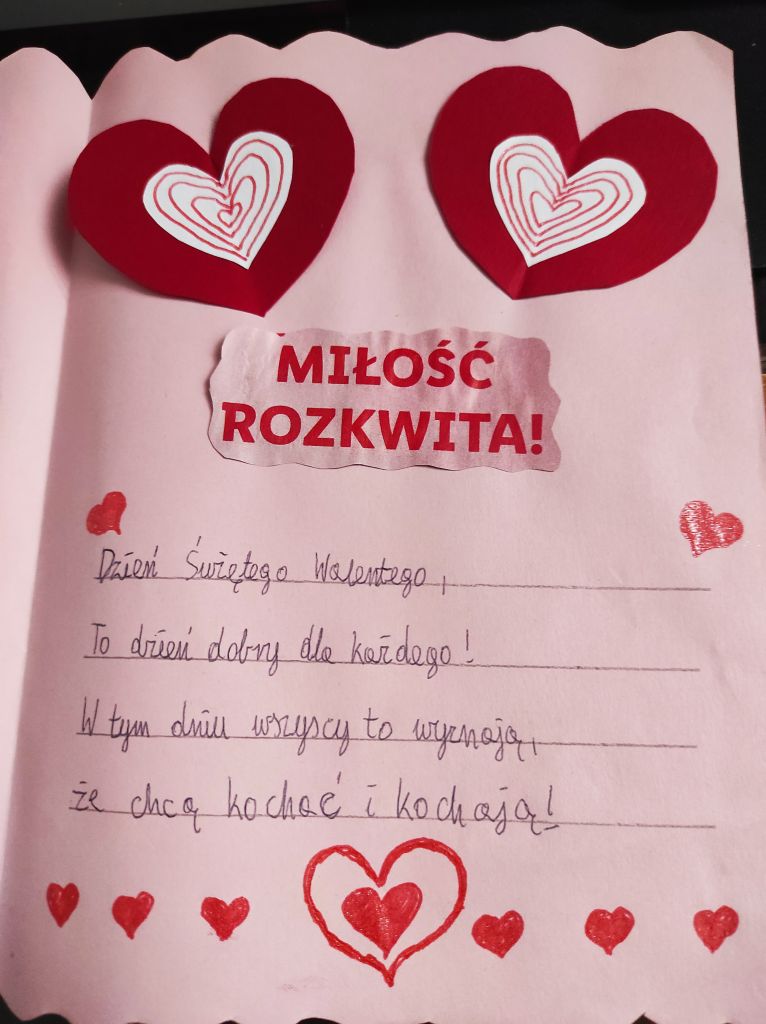 MIŁOŚĆ
ROZKWITA!
Dzień Świętego Walentego,
To dzień dobry dla każdego!
W tym dniu wszyscy to wyznają,
że chcą kochać i kochają!